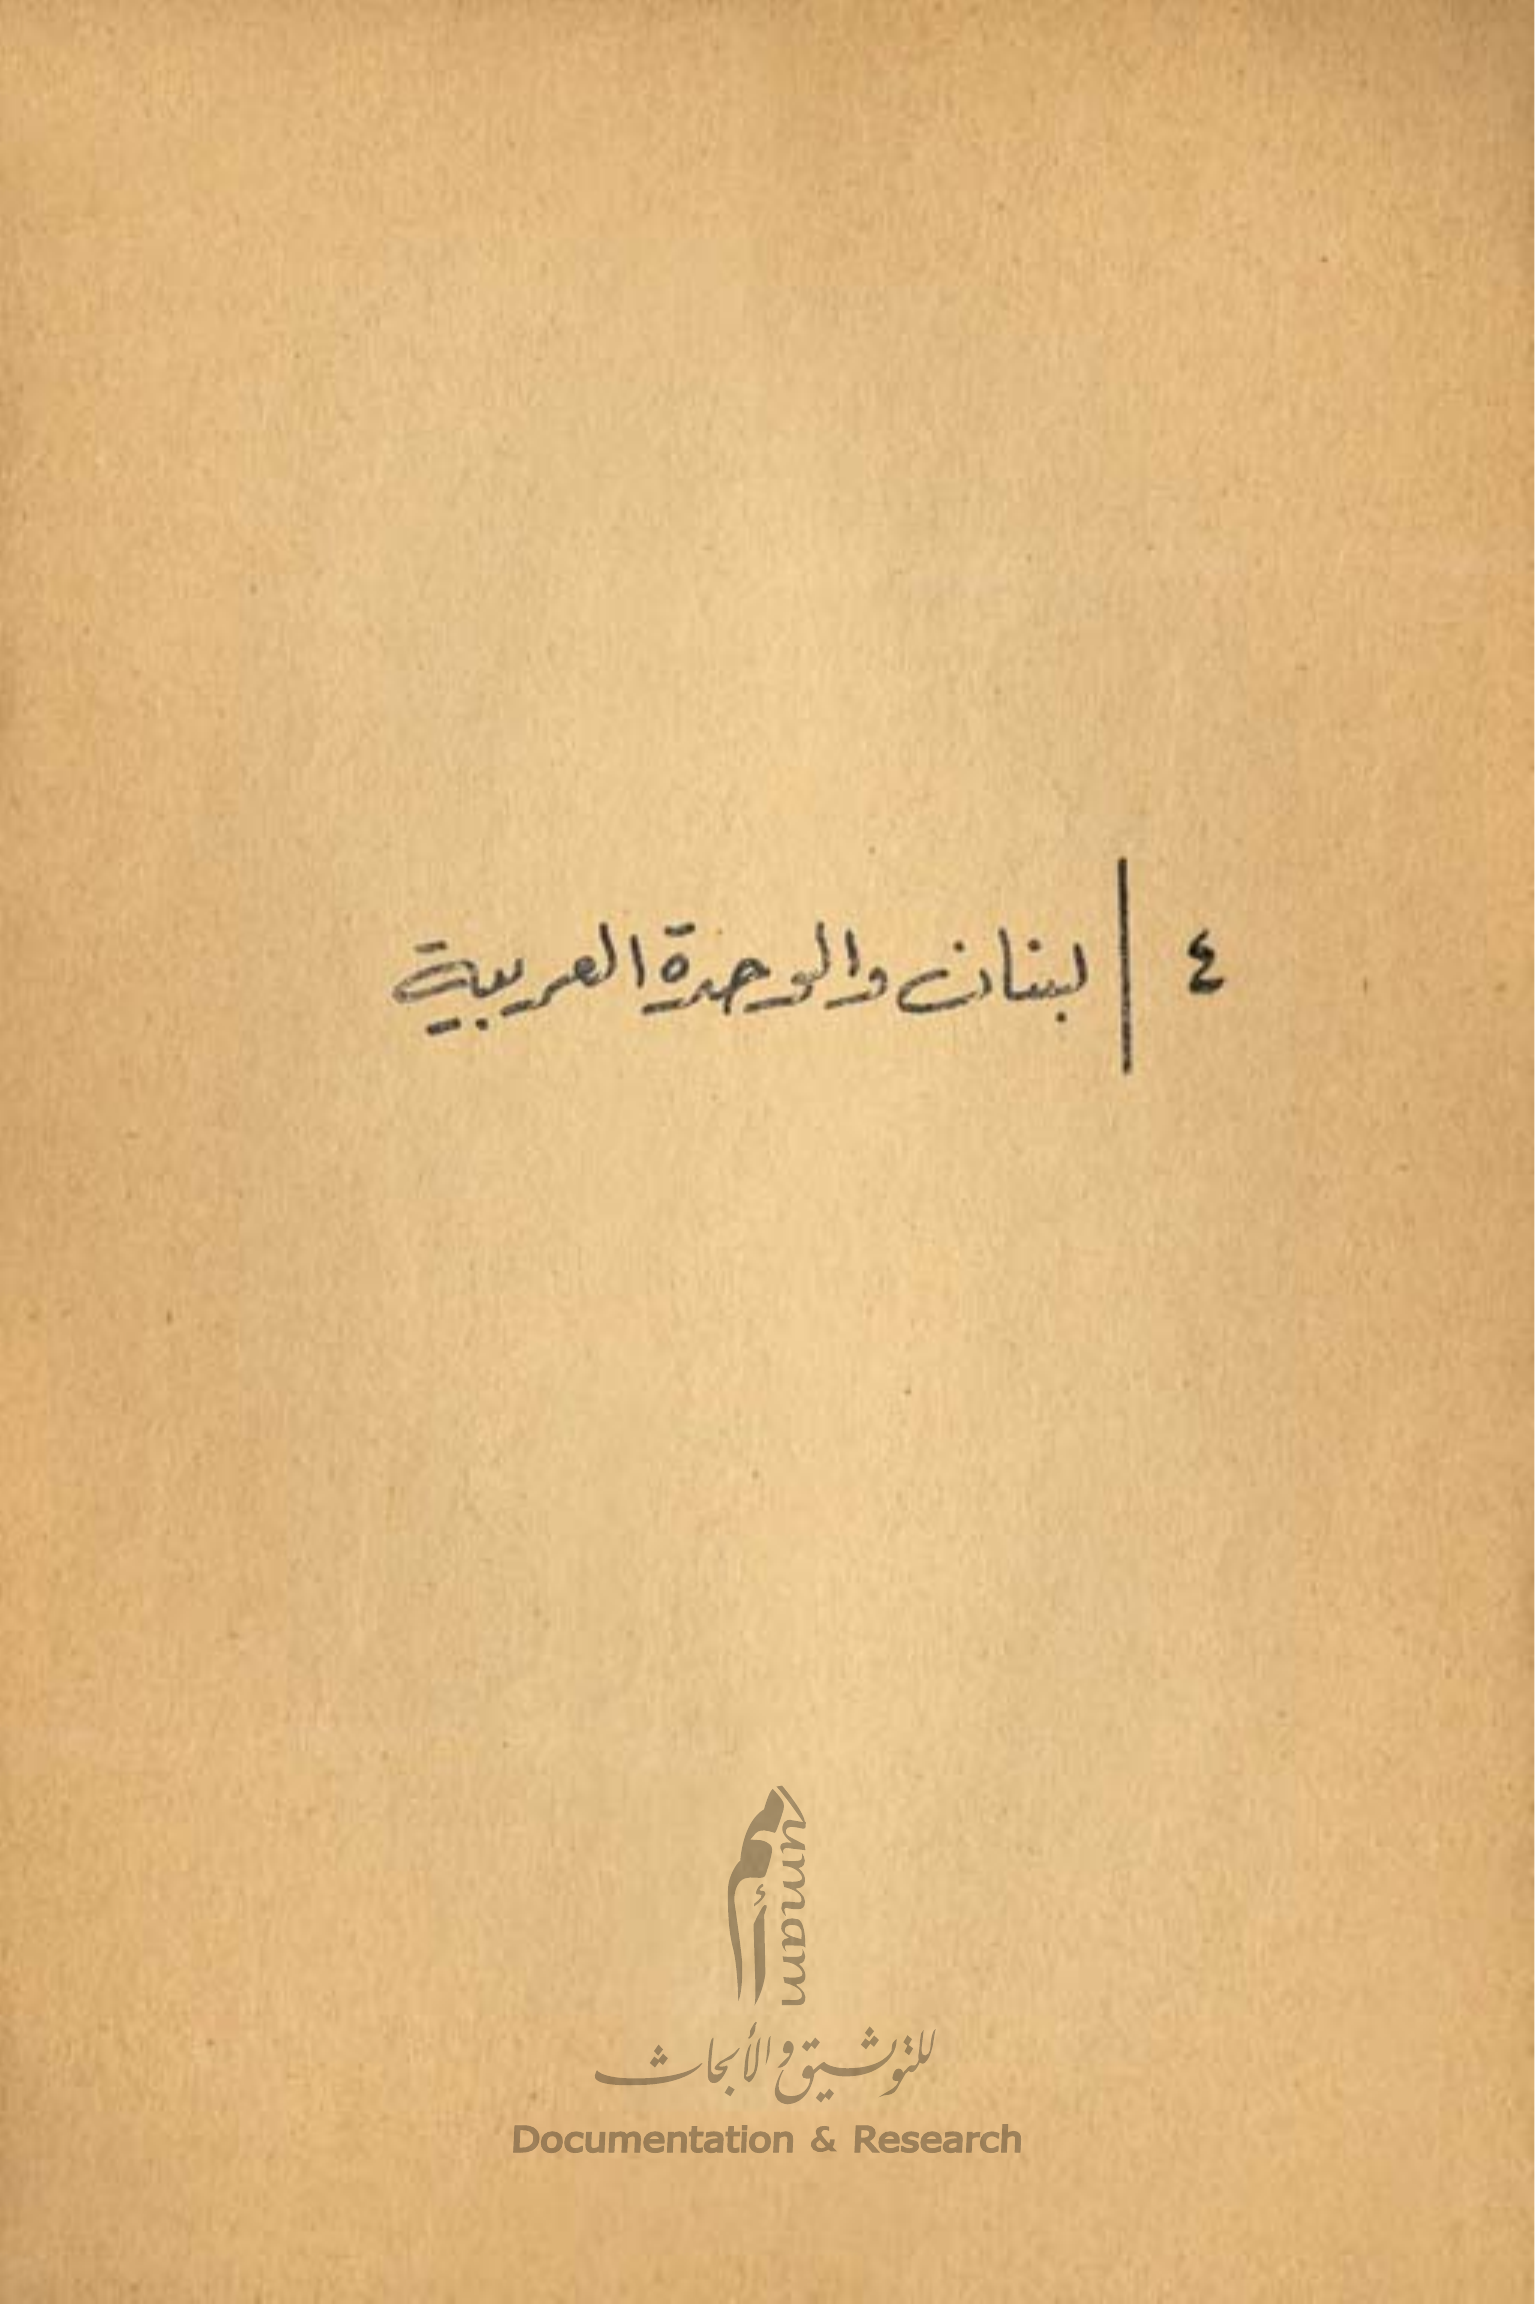 ٤ | لبنان والوحدة العربية
أمم
umam
للتوثيق والأبحاث
Documentation & Research